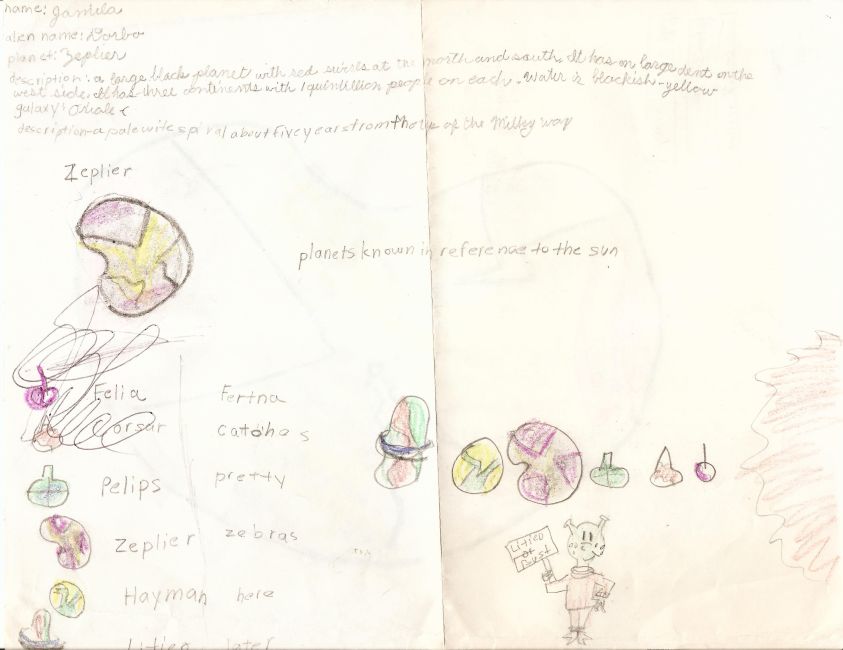 name: Jamila
alien name: Dorbo
planet: Zeplier
description: a large black planet with red swirls at the north and south. It has on large dent on the
west side. It has three continents with 1 quintillion people on each. Water is blackish-yellow
galaxy:
description-a pale wite spiral about five years from the tip of the Milky way
Zeplier
planets known in reference to the sun
Felia Fertna
orsar catches
Pelips pretty
Zeplier zebras
Hayman here
Litien later
Litien
or
Bust